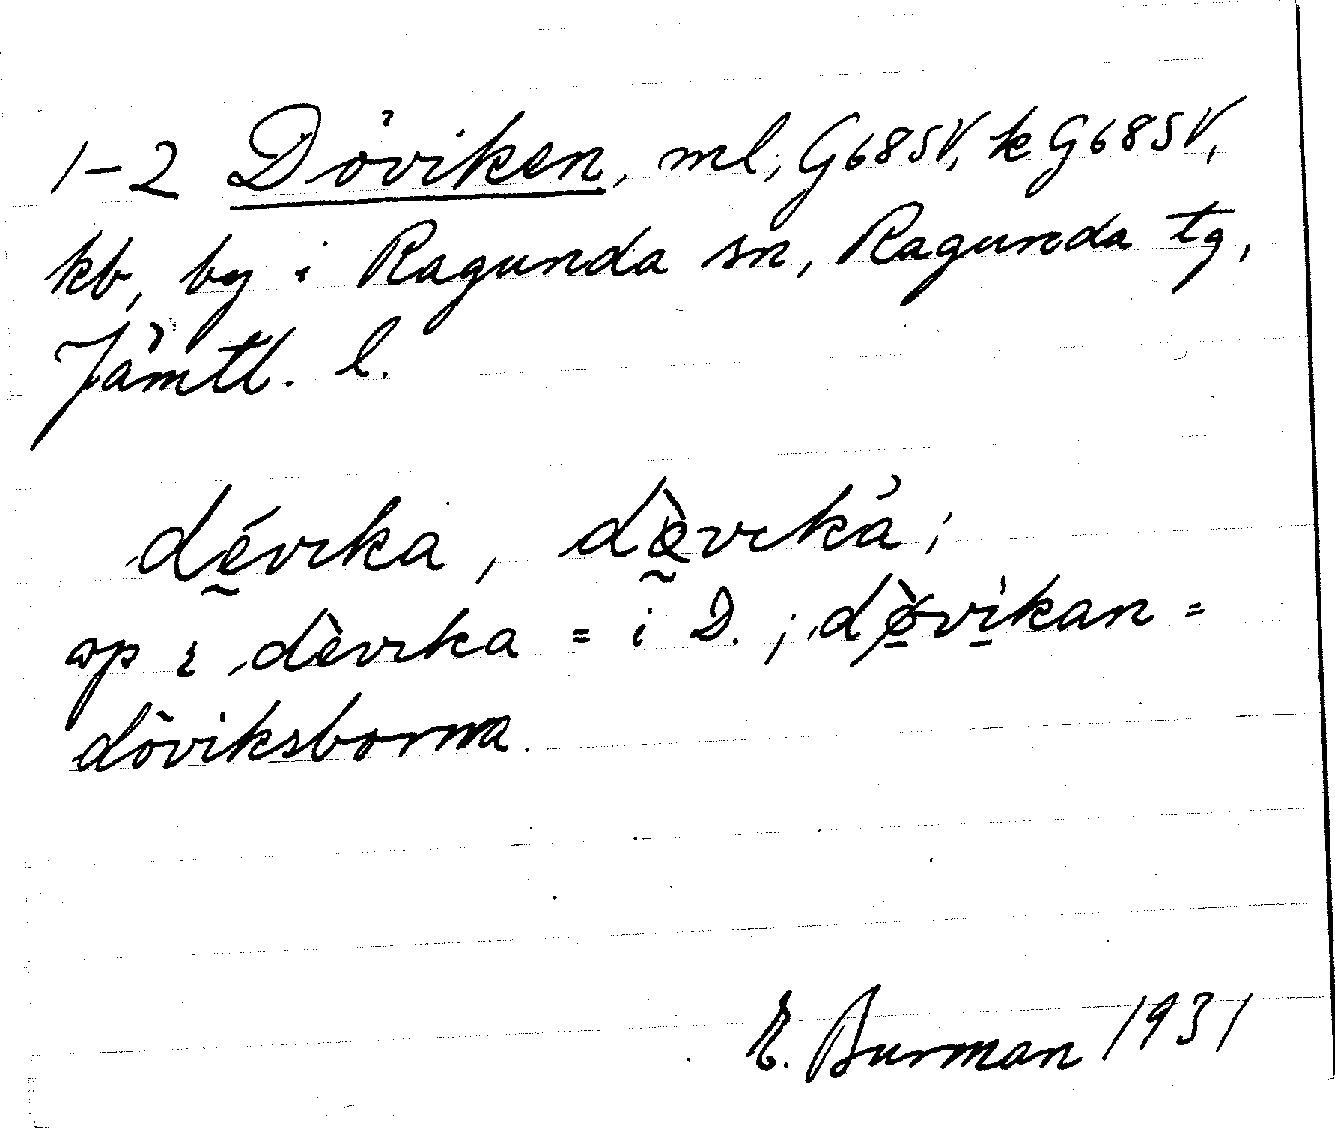 1-2 Döviken, ml, G685V, k G685V,
kb, by i Ragunda sn, Ragunda tg,
Jämtl. l.
dḛ́vıka, dḛ̀vıkà;
op ɩ dèvıka = i D.; dø̀vikan =
döviksborna.
E. Burman 1931